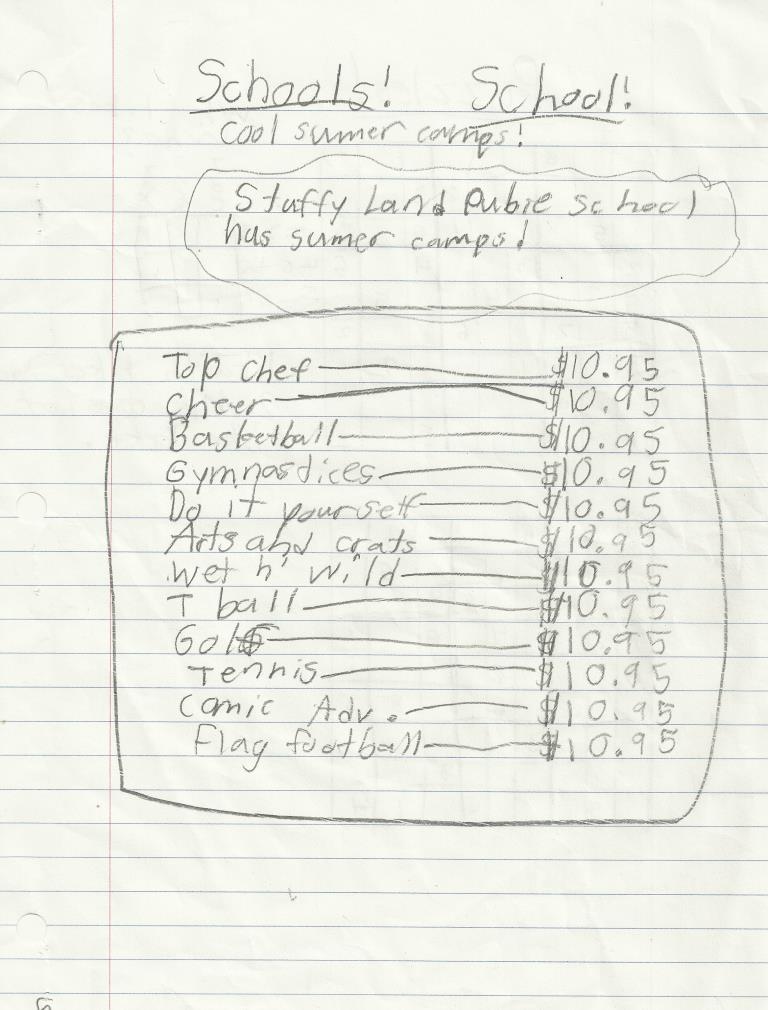 Schools! School!
Cool sumer camps!
Stuffy Land Pubie School
has sumer camps!
Top Chef $10.95
Cheer $10.95
Basketball $10.95
Gymnasdices $10.95
Do it yourself $10.95
Arts and crats $10.95
Wet n' wild $10.95
T ball $10.95
Golf $10.95
Tennis $10.95
Comic Adv. $10.95
Flag football $10.95